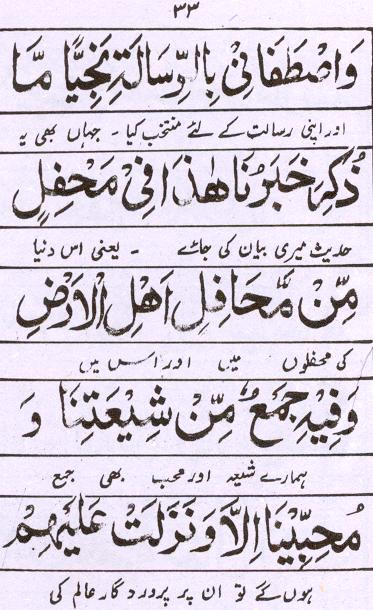 ٣٣
وَاصْطَفَانِیْ بِالرِّسَالَةِ نَجِیًّا مَّا
اور اپنی رسالت کے لئے منتخب کیا ۔ جہاں بھی یہ
ذُکِرَ خَبَرُنَا هٰذَا فِیْ مَحْفِلٍ
حدیث میری بیان کی جائے ۔ یعنی اس دنیا
مِّنْ مَّحَافِلِ اَهْلِ الْاَرْضِ
کی محفلوں میں اور اس میں
وَفِیْهِ جَمْعٌ مِّنْ شِیْعَتِنَا وَ
ہمارے شیعہ اور محب بھی جمع
مُحِبِّیْنَا اِلَّا وَ نَزَلَتْ عَلَیْهِمْ
ہوں گے تو ان پر پروردگار عالم کی